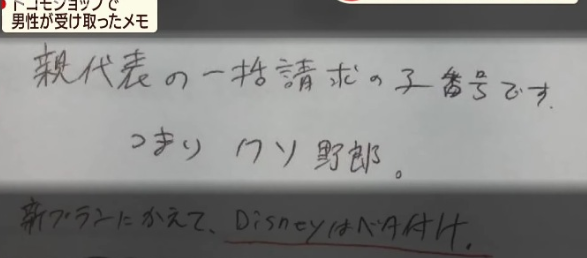 ドコモショップで
男性が受け取ったメモ
親代表の一括請求の子番号です。
つまり クソ野郎。
新プランにかえて、Disneyはベタ付け。